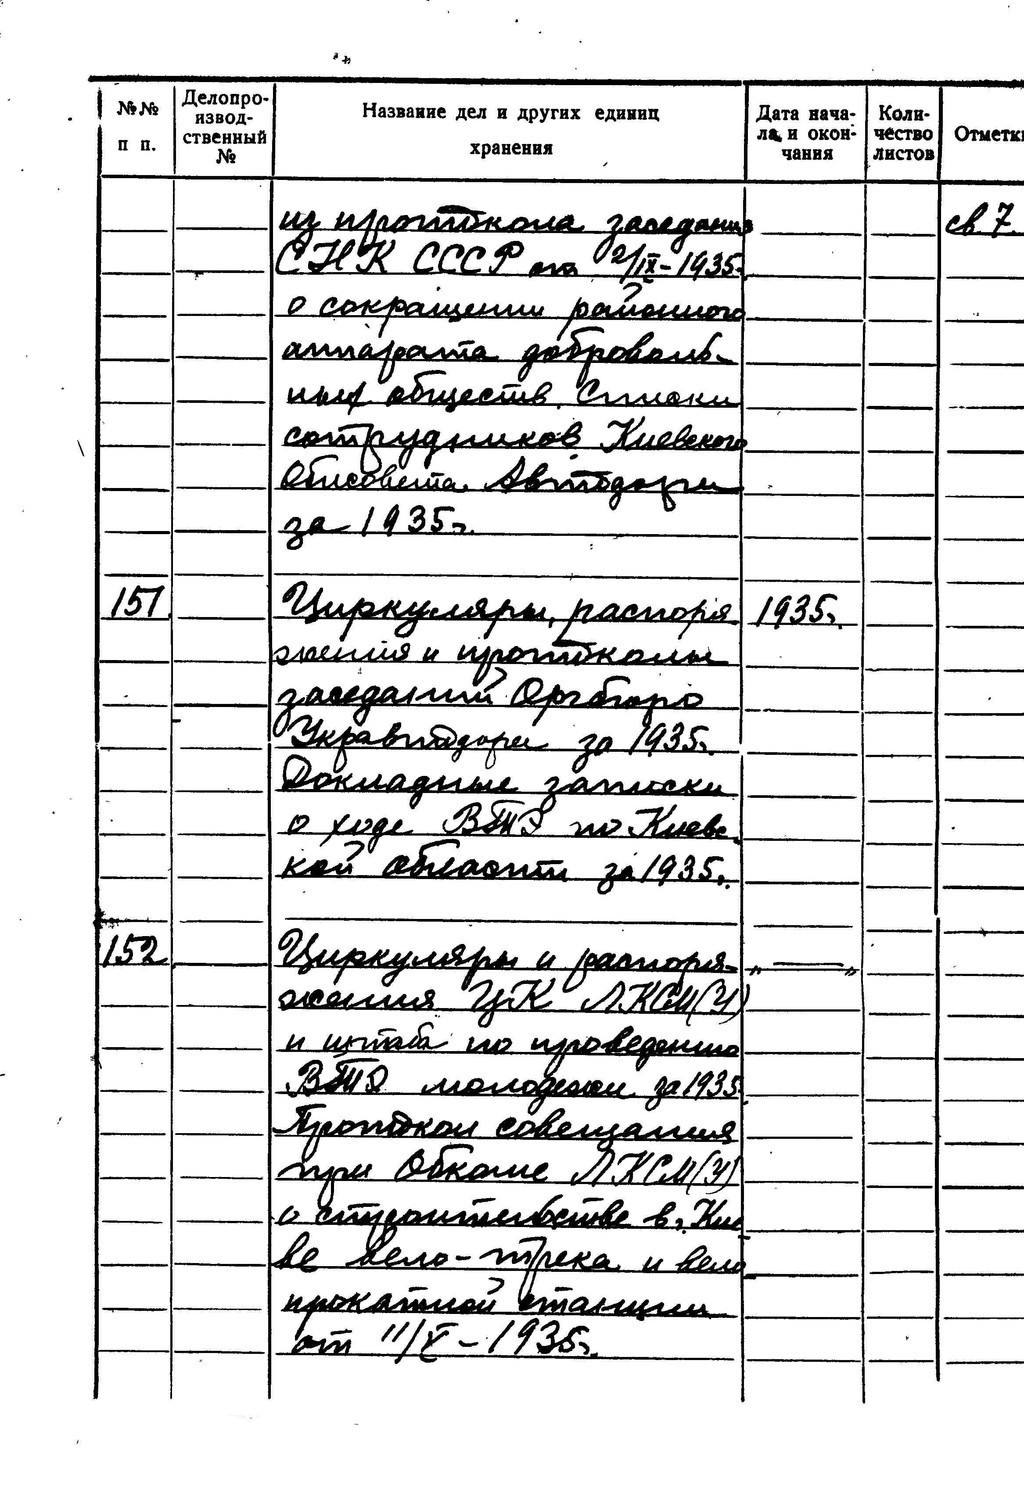 №№ п п.
Делопро-
извод-
ственный
№
Название дел и других единиц
хранения
Дата нача-
ла и окон-
чания
Коли-
чество
листов
Отметки
из протокола заседания
св. 7.
СНК СССР от 2/IX-1935г.
о сокращении районного
аппарата доброволь-
ных обществ. Списки
сотрудников Киевского
Облсовета Автодора
за 1935г.
151
Циркуляры, распоря
1935г.
жения и протоколы
заседаний Оргбюро
Укравтодора за 1935г.
Докладные записки
о ходе по Киевс-
кой области за 1935г.
152
Циркуляры и распоря-
„ — „
жения ЦК ЛКСМ(У)
и штаба по проведению
молодежи за 1935
Протокол совещания
при Обкоме ЛКСМ(У)
о строительстве в г. Кие
ве вело-трека и вело
прокатной станции
от 11/X-1935г.